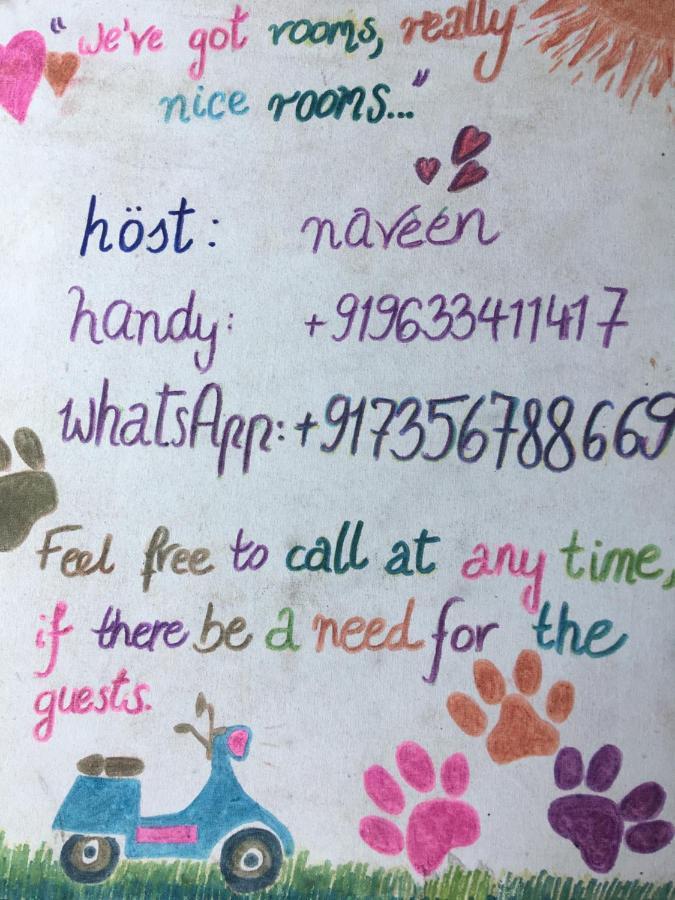 "we've got rooms, really
nice rooms..."
höst: naveen
handy: +919633411417
whatsApp: +917356788669
Feel free to call at any time,
if there be a need for the
guests.